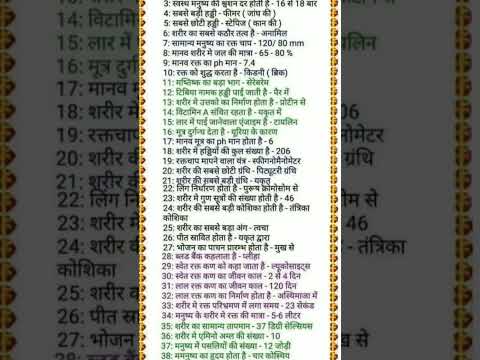 3: स्वस्थ मनुष्य की श्वशन दर होती है - 16 से 18 बार
4: सबसे बड़ी हड्डी - फीमर ( जांघ की )
5: सबसे छोटी हड्डी - स्टेपिज ( कान की )
6: शरीर का सबसे कठौर तत्व है - अनामिल
7: सामान्य मनुष्य का रक्त चाप - 120/ 80 mm
8: मानव शरीर में जल की मात्रा - 65 - 80 %
9: मानव रक्त का ph मान - 7.4
10: रक्त को शुद्ध करता है - किडनी ( ब्रिक)
11: मष्तिष्क का बड़ा भाग - सेरेबरेम
12: टिबिया नामक हड्डी पाई जाती है - पैर में
13: शरीर में उत्तको का निर्माण होता है - प्रोटीन से
14: विटामिन A संचित रहता है - यकृत में
15: लार में पाई जानेवाला एंजाइम है - टायलिन
16: मूत्र दुर्गन्ध देता है - यूरिया के कारण
17: मानव मूत्र का ph मान होता है - 6
18: शरीर में हड्डियों की कुल संख्या है - 206
19: रक्तचाप मापने वाला यंत्र - स्फीगनोमैनोमेटर
20: शरीर की सबसे छोटी ग्रंथि - पिट्यूटरी ग्रंथि
21: शरीर की सबसे बड़ी ग्रंथि - यकृत
22: लिंग निर्धारण होता है - पुरूष क्रोमोसोम से
23: शरीर में गुण सूत्रों की संख्या होती है - 46
24: शरीर की सबसे बड़ी कोशिका होती है - तंत्रिका
कोशिका
25: शरीर का सबसे बड़ा अंग - त्वचा
26: पीत स्रावित होता है - यकृत द्वारा
27: भोजन का पाचन प्रारम्भ होता है - मुख से
28: ब्लड बैंक कहलाता है - प्लीहा
29: स्वेत रक्त कण को कहा जाता है - ल्यूकोसाइट्स
30: स्वेत रक्त कण का जीवन काल - 2 से 4 दिन
31: लाल रक्त कण का जीवन काल - 120 दिन
32: लाल रक्त कण का निर्माण होता है - अस्थिमाजा में
33: शरीर मे रक्त परिभ्रमण में लगा समय - 23 सेकंड
34: मनुष्य के शरीर में रक्त की मात्रा - 5-6 लीटर
35: शरीर का सामान्य तापमान - 37 डिग्री सेल्सियस
36: शरीर मे एमिनो अम्ल की संख्या - 10
37: मनुष्य में पसलियों की संख्या - 12 जोड़ी
38: ममनुष्य का हृदय होता है - चार कोस्थिय